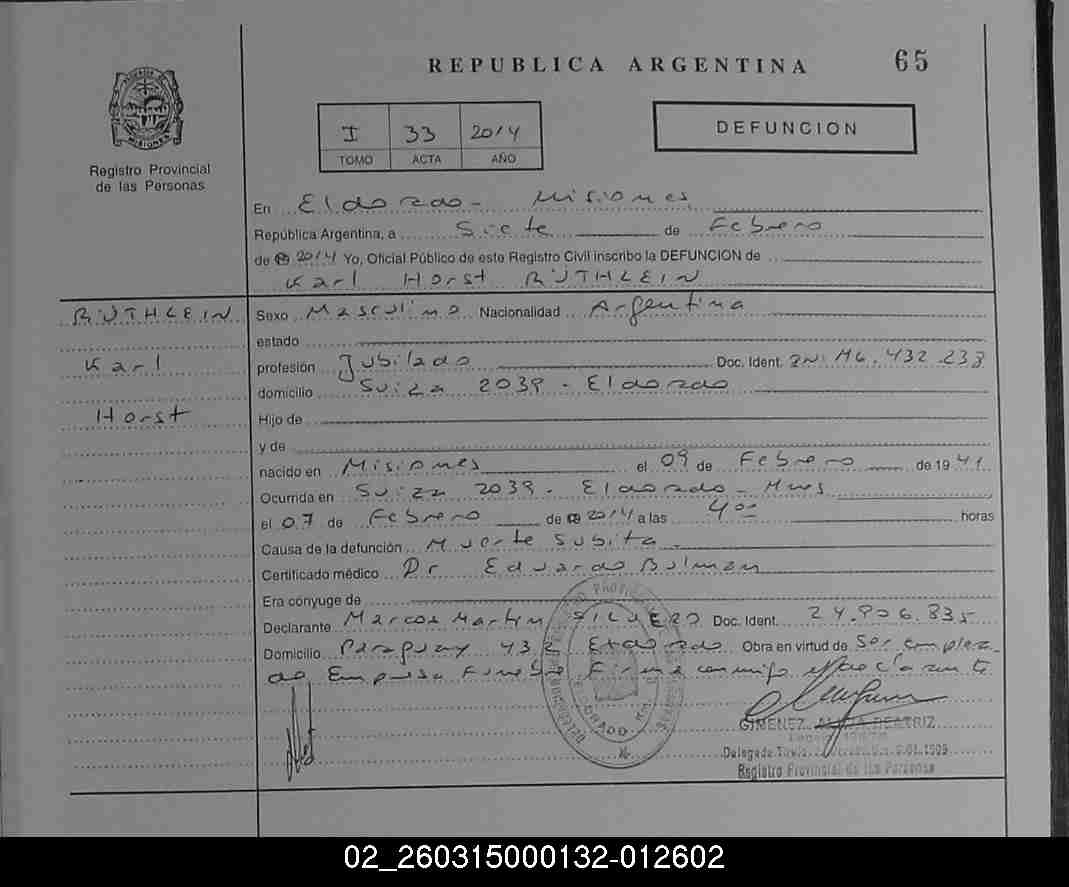 REPUBLICA ARGENTINA
65
I 33 2014
TOMO ACTA AÑO
DEFUNCION
PROVINCIA DE
MISIONES
Registro Provincial
de las Personas
En Eldorado - Misiones
República Argentina, a Siete de Febrero
de 2014 Yo, Oficial Público de este Registro Civil inscribo la DEFUNCION de
Karl Horst RÜTHLEIN
RÜTHLEIN
Karl
Horst
Sexo Masculino Nacionalidad Argentina
estado
profesión Jubilado Doc. Ident. M6.432.233
domicilio Suiza 2039 - Eldorado
Hijo de
y de
nacido en Misiones el 09 de Febrero de 1941
Ocurrida en Suiza 2039 - Eldorado - Mnes
el 07 de Febrero de 2014 a las 4 00 horas
Causa de la defunción Muerte Subita.
Certificado médico Dr Eduardo Bulman
Era cónyuge de
Declarante Marcos Martin SILVERO Doc. Ident. 24.906.835
Domicilio Paraguay 432 Eldorado Obra en virtud de Ser emplea-
do Empresa Funebre Firma conmigo
GIMENEZ BEATRIZ
Delegada
Registro Provincial de las Personas
02_260315000132-012602